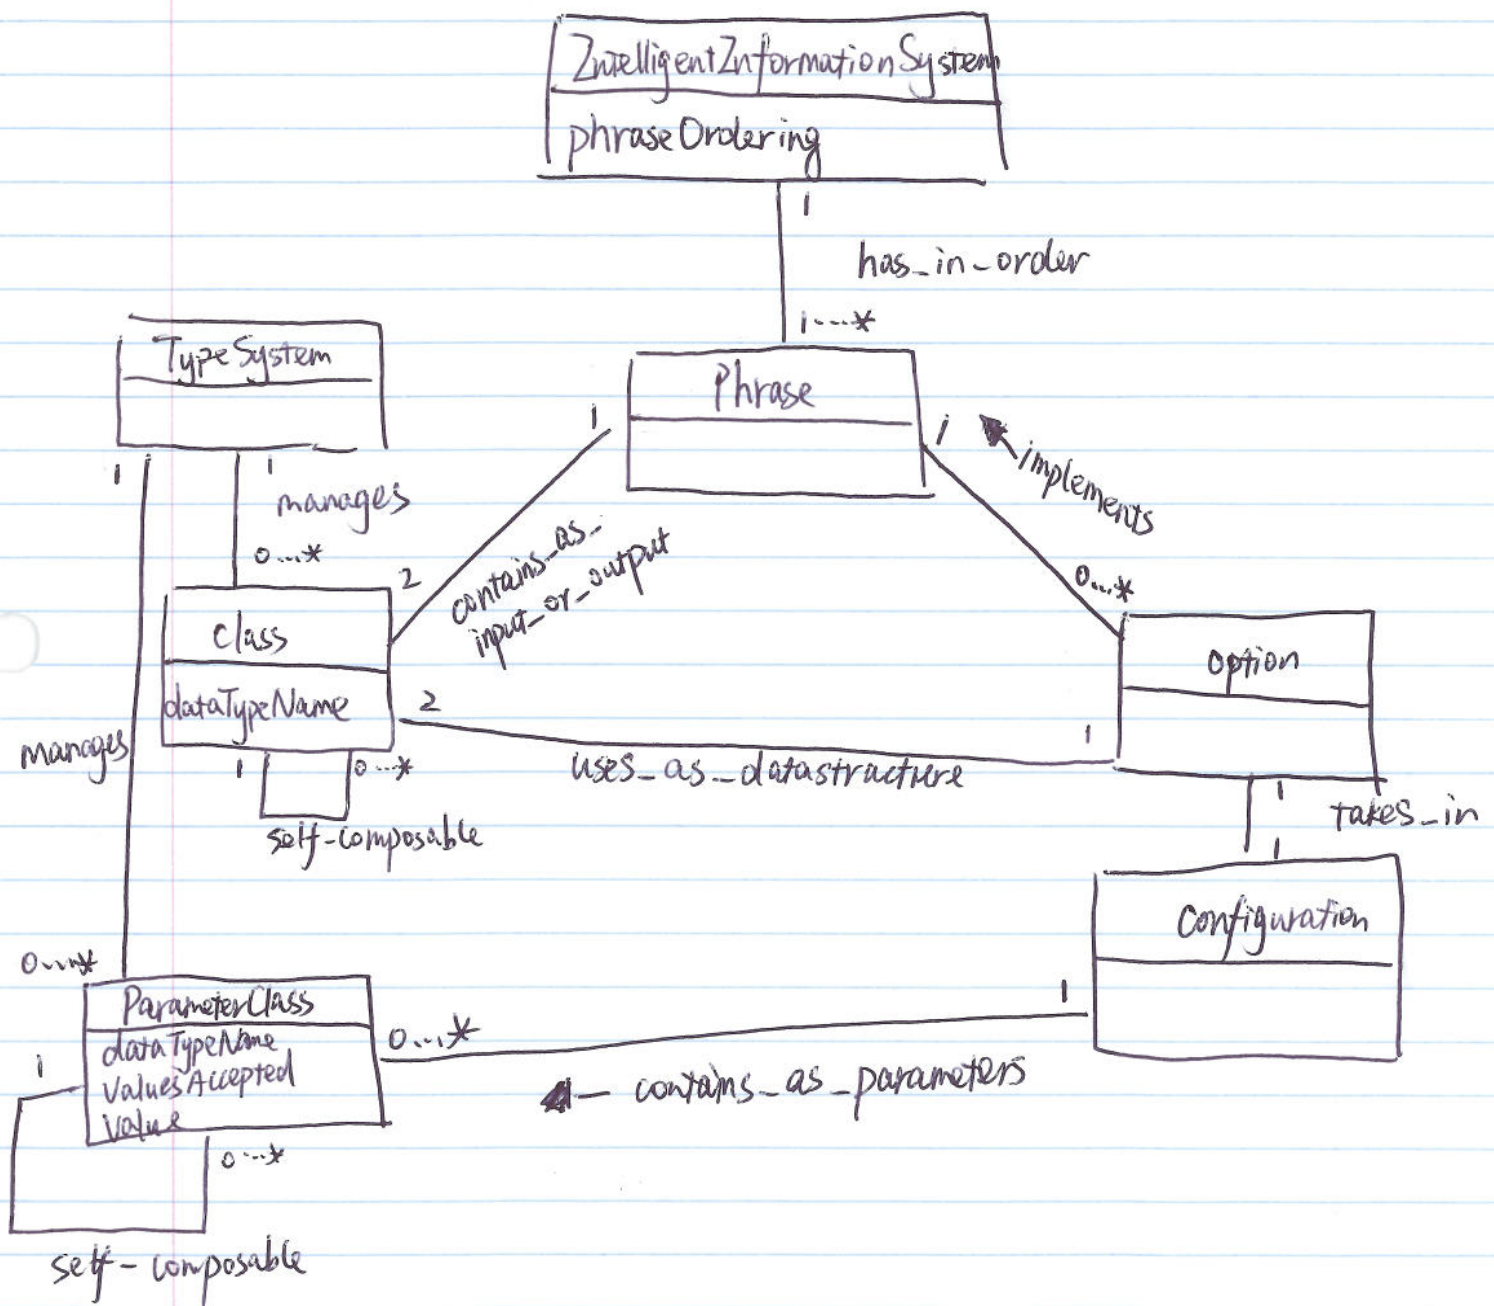 IntelligentInformationSystem
phraseOrdering
1
has_in_order
1...*
TypeSystem
Phrase
1
1
implements
1
1
manages
0...*
2
contains_as_
input_or_output
0...*
Class
option
dataTypeName
2
1
manages
1
0...*
uses_as_datastructure
1
takes_in
self-composable
1
Configuration
0...*
ParameterClass
1
dataTypeName
0...*
1
valuesAccepted
contains_as_parameters
value
0...*
self-composable